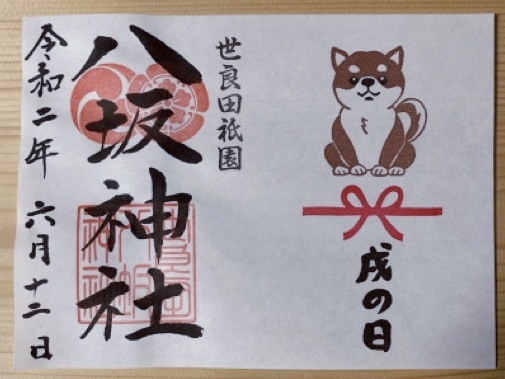 戌の日
世良田祇園
八坂神社
令和二年 六月十二日